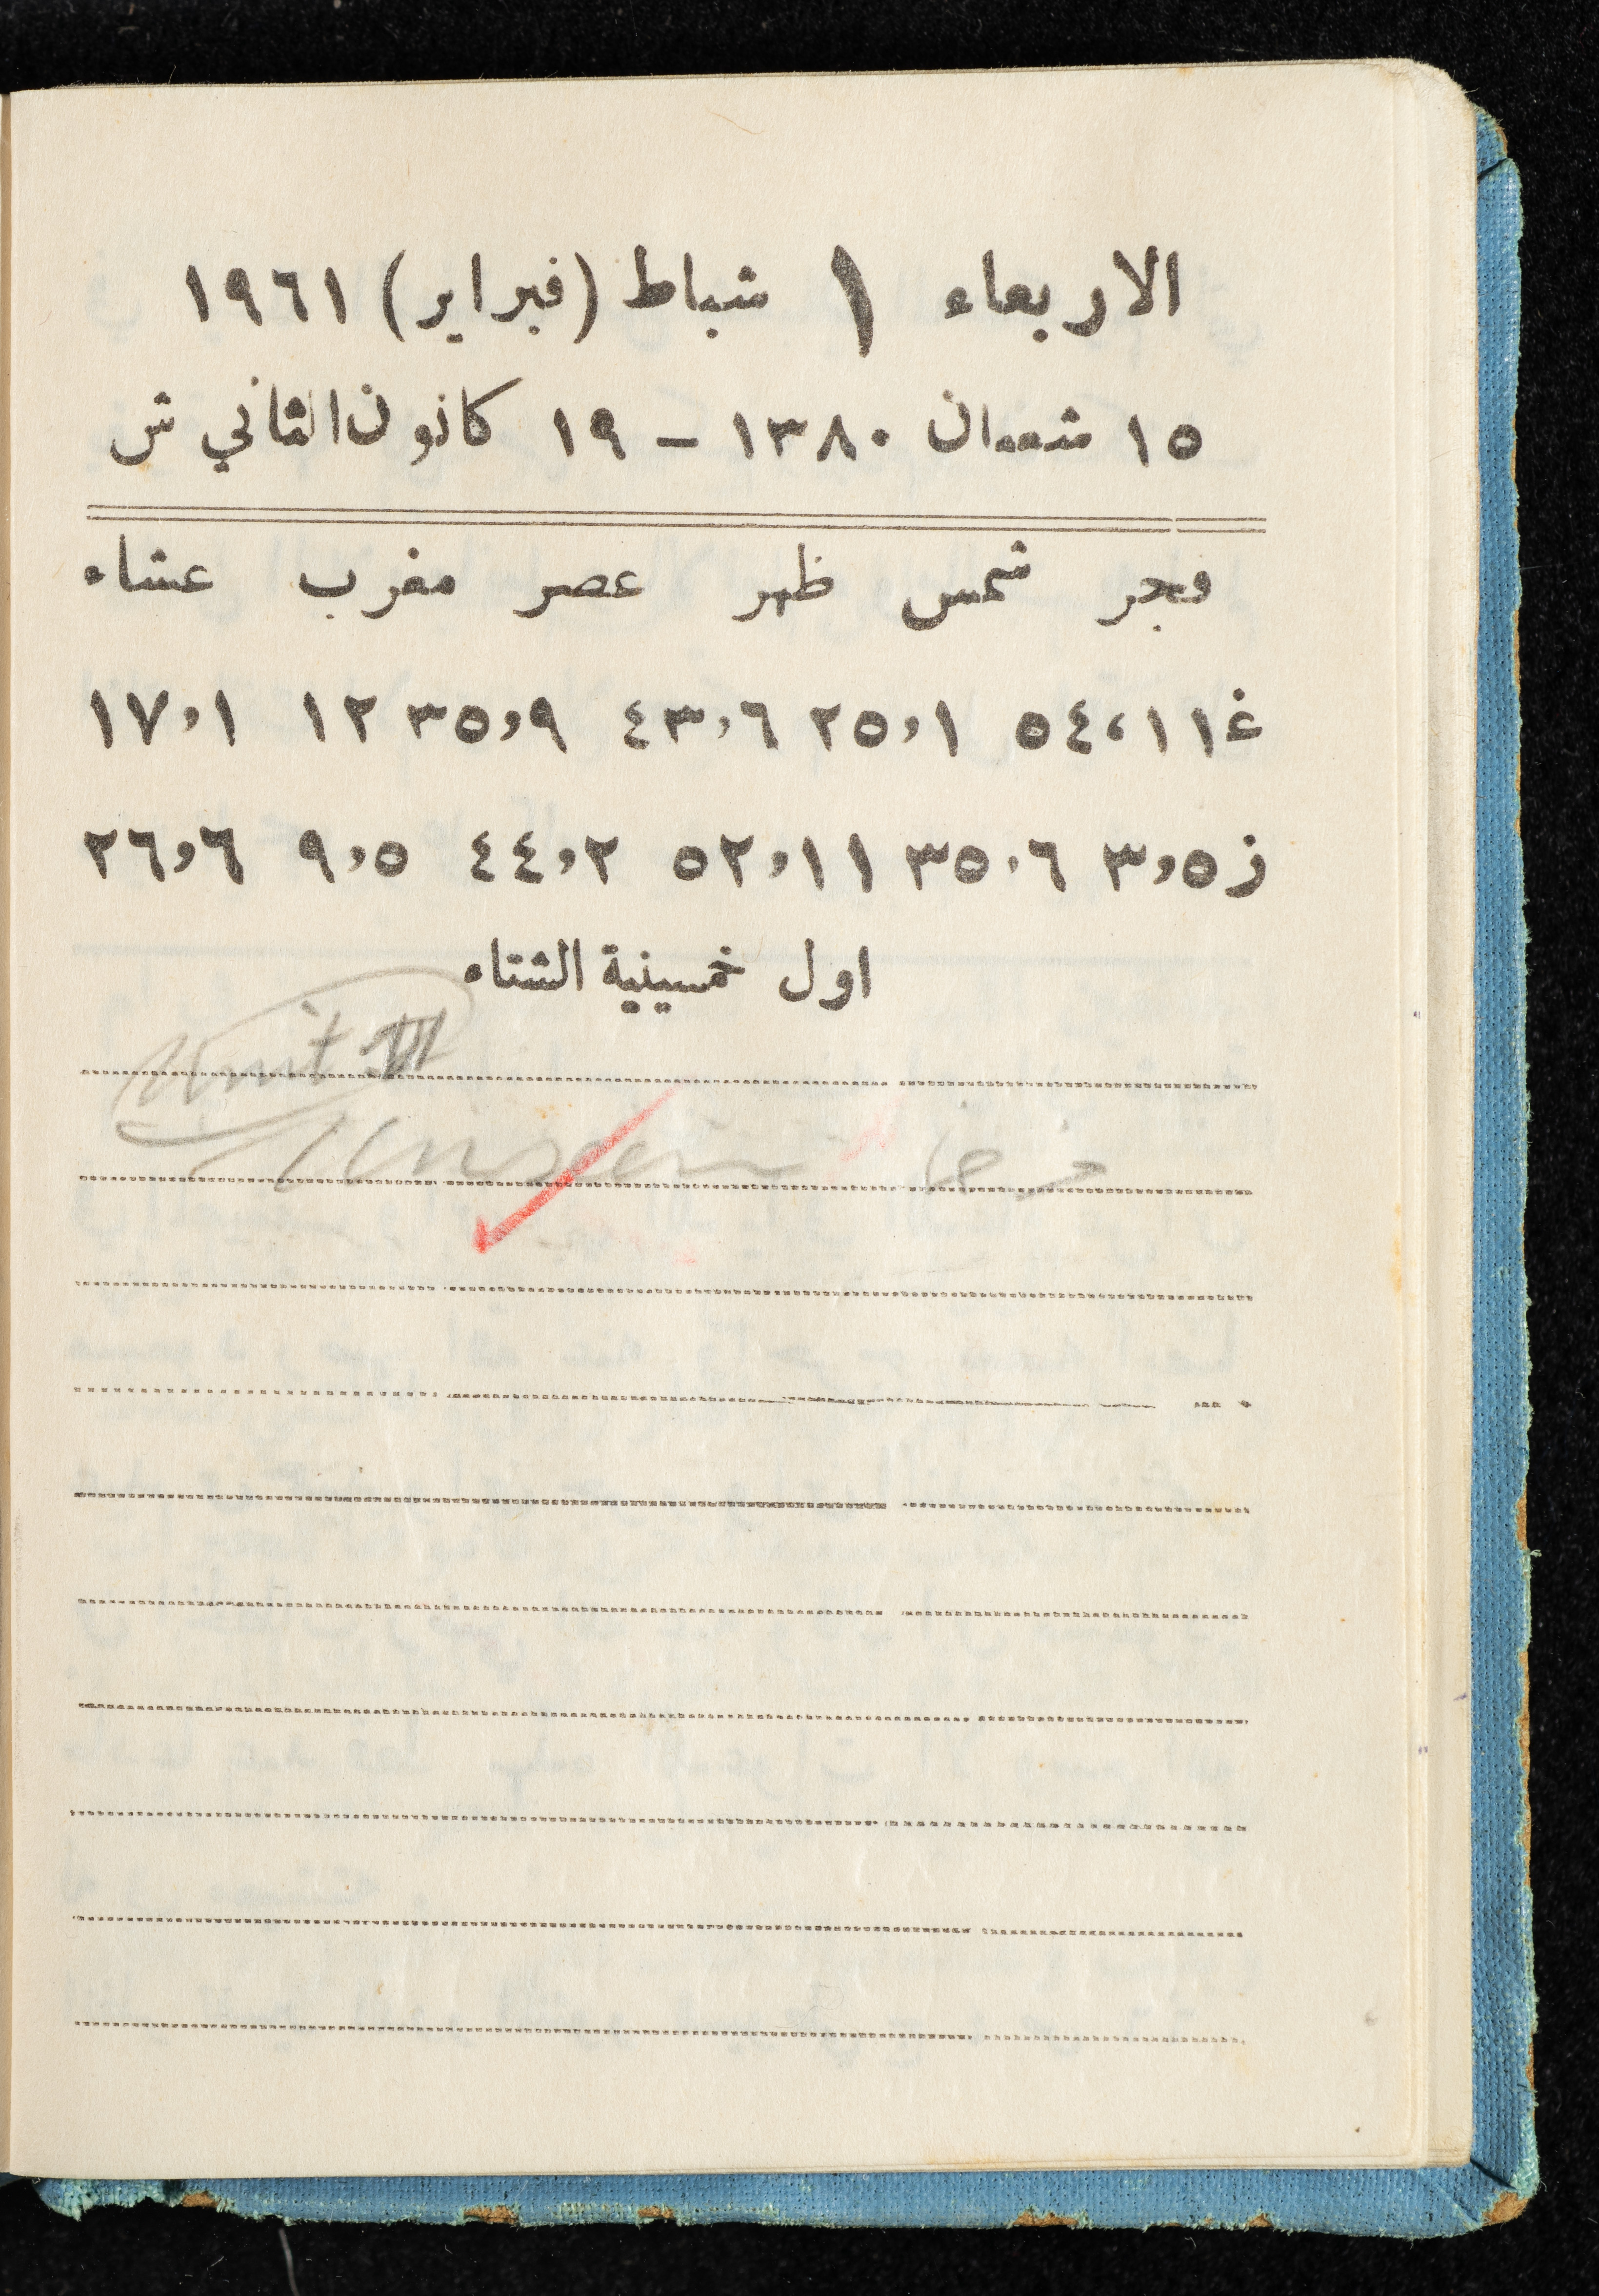 الاربعاء ١ شباط (فبراير) ١٩٦١
١٥ شعبان ١٣٨٠ - ١٩ كانون الثاني ش
فجر شمس ظهر عصر مغرب عشاء
غ ٥٤،١١ ٢٥،١ ٤٣،٦ ٣٥،٩ ١٢ ١٧،١
ز ٣،٥ ٣٥،٦ ٥٢،١١ ٤٤،٢ ٩،٥ ٢٦،٦
اول خمسينية الشتاء
Unit VI